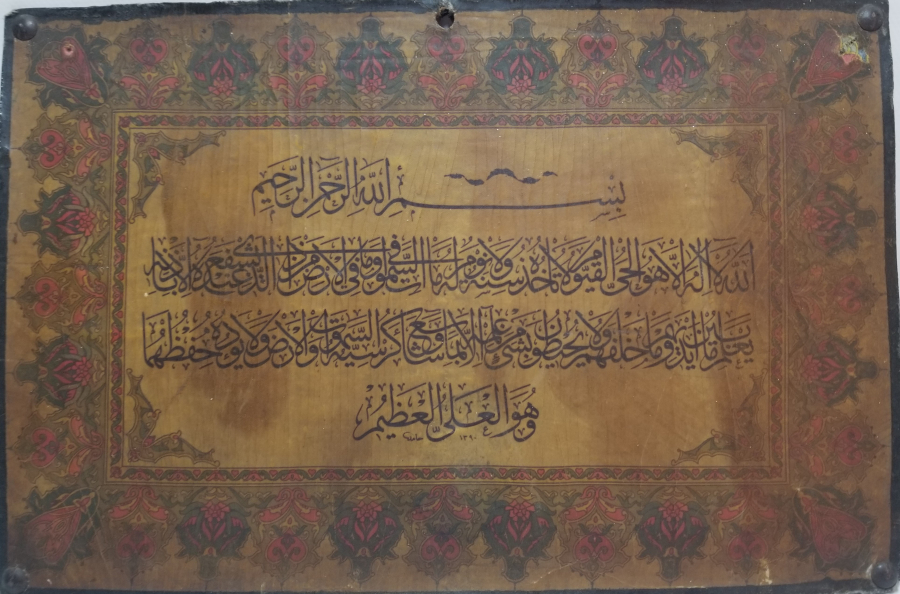 بِسْمِ اللهِ الرَّحْمٰنِ الرَّحِيمِ
اللهُ لَا إِلٰهَ إِلَّا هُوَ الْحَيُّ الْقَيُّومُ لَا تَأْخُذُهُ سِنَةٌ وَلَا نَوْمٌ لَهُ مَا فِي السَّمٰوَاتِ وَمَا فِي الْأَرْضِ مَنْ ذَا الَّذِي يَشْفَعُ عِنْدَهُ إِلَّا بِإِذْنِهِ
يَعْلَمُ مَا بَيْنَ أَيْدِيهِمْ وَمَا خَلْفَهُمْ وَلَا يُحِيطُونَ بِشَيْءٍ مِنْ عِلْمِهِ إِلَّا بِمَا شَاءَ وَسِعَ كُرْسِيُّهُ السَّمٰوَاتِ وَالْأَرْضَ وَلَا يَئُودُهُ حِفْظُهُمَا
وَهُوَ الْعَلِيُّ الْعَظِيمُ
١٣٩٠